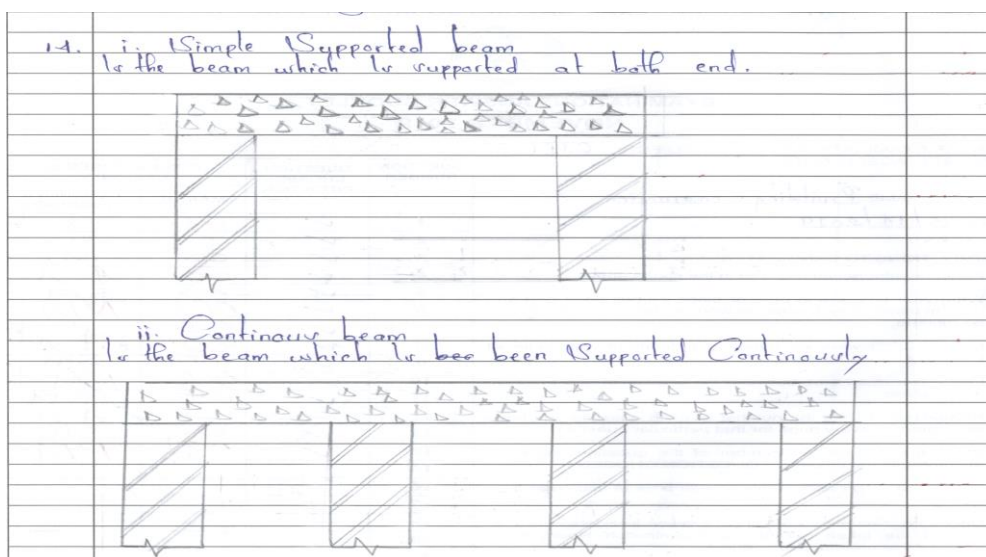 14. i. Simple Supported beam
Is the beam which Is supported at both end.
ii. Continous beam
Is the beam which Is bee been Supported Continously